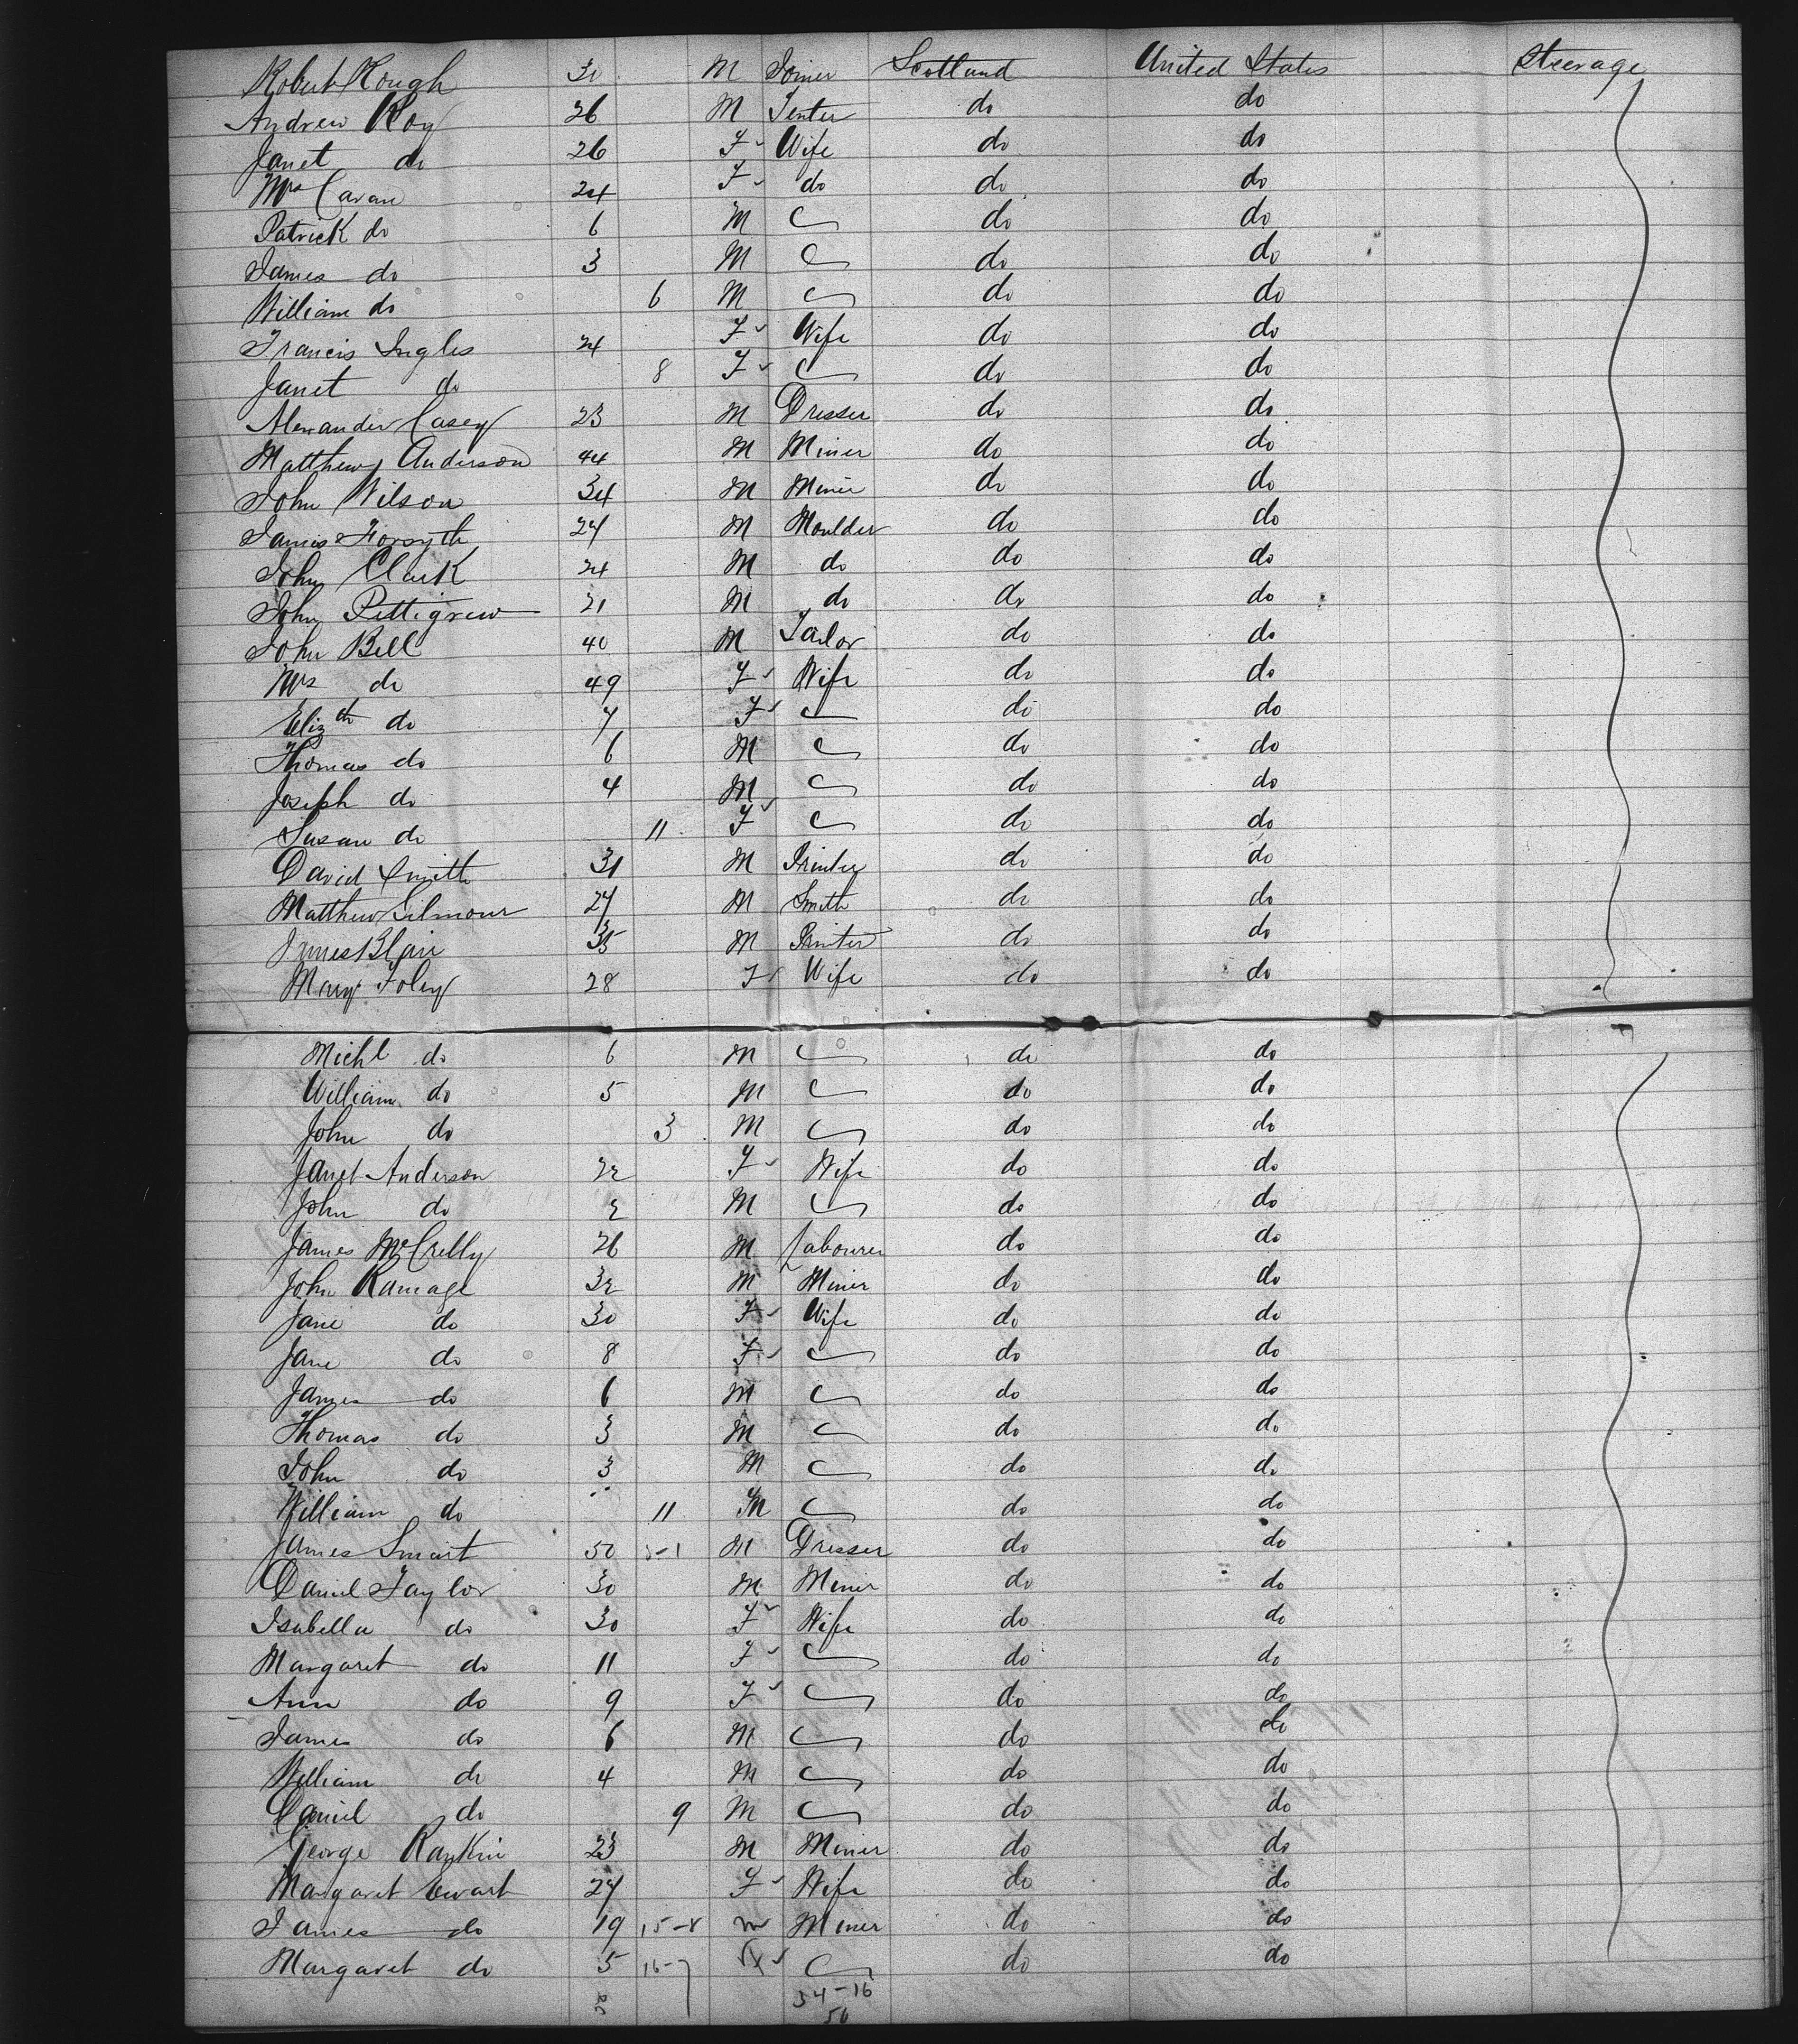 Robert Rough 30 M Joiner Scotland United States Steerage
Andrew Roy 26 M Tenter do do
Janet do 26 F Wife do do
Mrs Cavan 24 F do do do
Patrick do 6 M C do do
James do 3 M C do do
William do 6 M C do do
Francis Ingles 24 F Wife do do
Janet do 8 F C do do
Alexander Casey 23 M Dresser do do
Matthew Anderson 44 M Miner do do
John Wilson 34 M Miner do do
James Forsyth 24 M Moulder do do
John Clark 24 M do do do
John Pettigrew 21 M do do do
John Bell 40 M Tailor do do
Mrs do 49 F Wife do do
Elizth do 7 F C do do
Thomas do 6 M C do do
Joseph do 4 M C do do
Susan do 11 F C do do
David Smith 31 M Printer do do
Matthew Gilmour 27 M Smith do do
James Blair M Printer do do
Mary Foley 28 F Wife do do
Michl do 6 M C do do
William do 5 M C do do
John do 3 M C do do
Janet Anderson 22 F Wife do do
John do 2 M C do do
James McCrelly 26 M Labourer do do
John Ramage 32 M Miner do do
Jane do 30 F Wife do do
Jane do 8 F C do do
James do 6 M C do do
Thomas do 3 M C do do
John do 3 M C do do
William do 11 M C do do
James Smart 50 M Dresser do do
Daniel Taylor 30 M Miner do do
Isabella do 30 F Wife do do
Margaret do 11 F C do do
Ann do 9 F C do do
James do 6 M C do do
William do 4 M C do do
Daniel do 9 M C do do
George Rankin 23 M Miner do do
Margaret Ewart 27 F Wife do do
James do 19 15-8 M Miner do do
Margaret do 5 16-7 F C do do
34-16
50